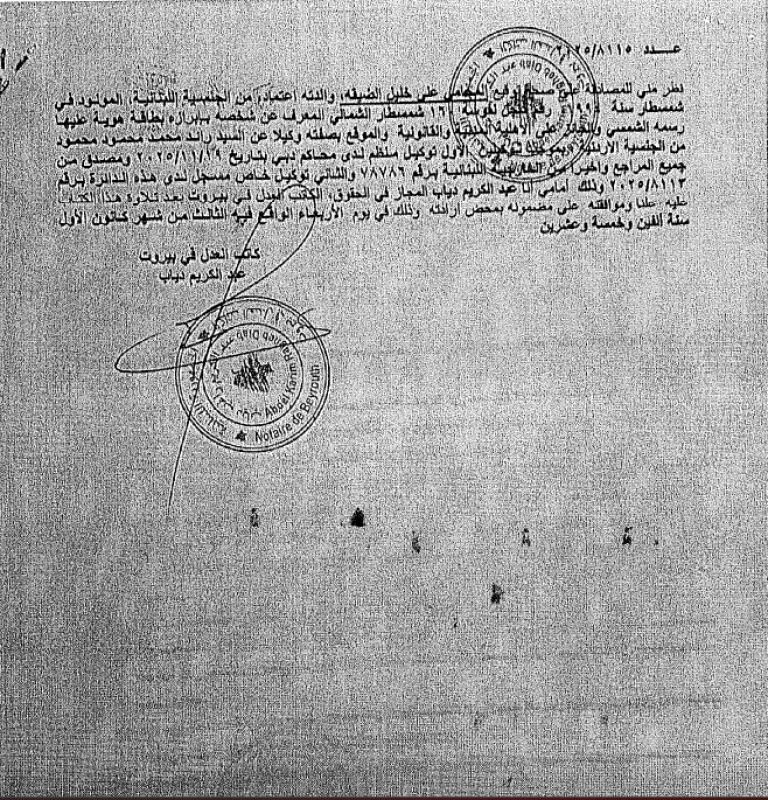 عدد ٢٠٢٥/٨١١٥
نظر مني للمصادقة صحة توقيع المحامي علي خليل الضيقه، والدته اعتماد، من الجنسية اللبنانية، المولود في
شمسطار سنة رقم سجل شمسطار الشمالي المعرف عن شخصه بابرازه بطاقة هوية عليها
رسمه الشمسي على الاهلية والقانونية والموقع بصفته وكيلا عن السيد رائد محمد محمود محمود
من الجنسية الاردنية الاول توكيل منظم لدى محاكم دبي بتاريخ ٢٠٢٥/١١/١٩ ومصدق من
جميع المراجع واخيرا من الخارجية اللبنانية برقم ٧٨٧٨٦ والثاني توكيل خاص مسجل لدى هذه الدائرة برقم
٢٠٢٥/٨١١٣ وذلك امامي انا عبد الكريم دياب المجاز في الحقوق، الكاتب العدل في بيروت بعد تلاوة هذا الكتاب
عليه علنا وموافقته على مضمونه بمحض ارادته وذلك في يوم الأربعاء الواقع فيه الثالث من شهر كانون الأول
سنة ألفين وخمسة وعشرين
كاتب العدل في بيروت
عبد الكريم دياب
Abdel Karim Ragheb Diab
Notaire de Beyrouth